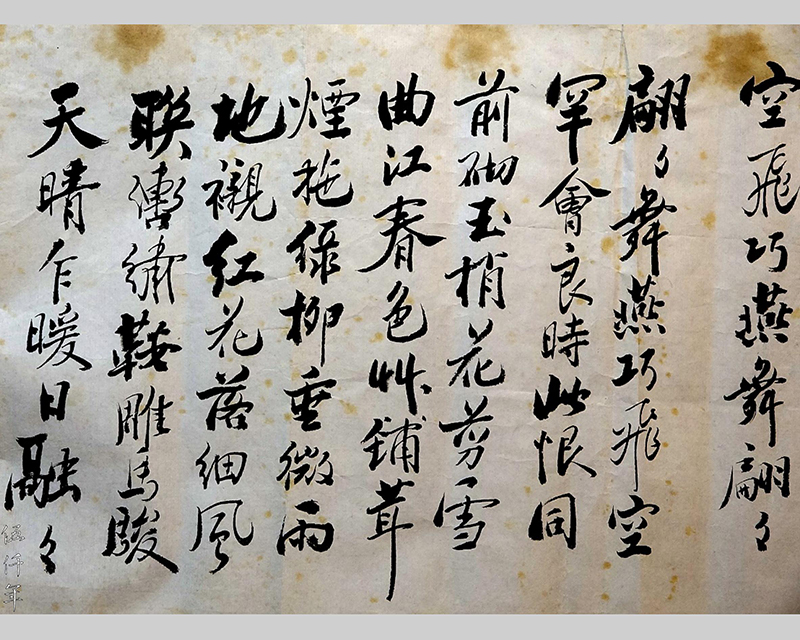 空飛巧燕舞翩々
翩々舞燕巧飛空
罕會良時此恨同
前砌玉梢花剪雪
曲江春色艸鋪茸
煙拖綠柳垂微雨
地襯紅花落細風
聯轡繡鞍雕馬駿
天晴乍暖日融々
伍仟年